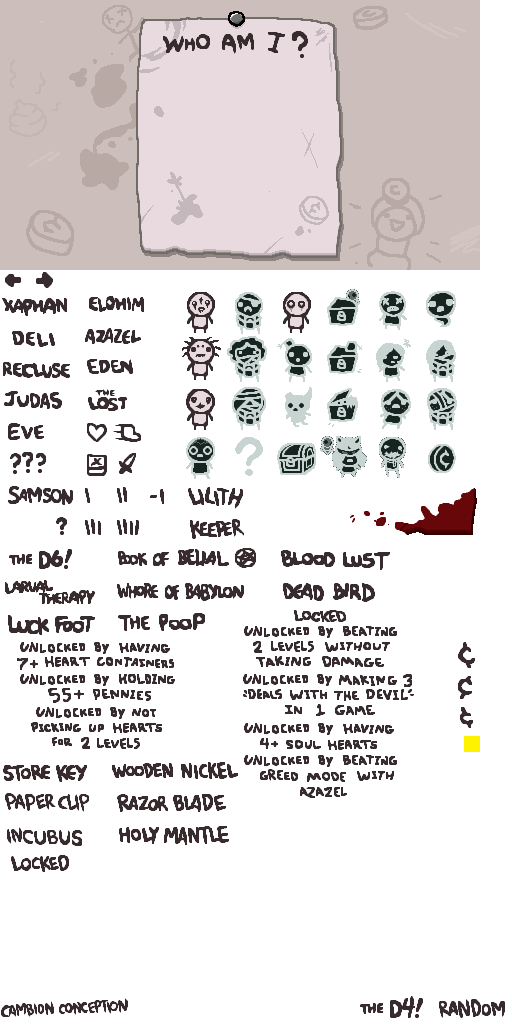 WHO AM I?
XAPHAN ELOHIM
DELI AZAZEL
RECLUSE EDEN
JUDAS THE LOST
EVE
???
?
SAMSON I II -I LILITH
? III IIII KEEPER
THE D6! BOOK OF BELIAL BLOOD LUST
LARVAL THERAPY WHORE OF BABYLON DEAD BIRD
LUCK FOOT THE POOP
LOCKED
UNLOCKED BY HAVING
7+ HEART CONTAINERS
UNLOCKED BY HOLDING
55+ PENNIES
UNLOCKED BY NOT
PICKING UP HEARTS
FOR 2 LEVELS
UNLOCKED BY BEATING
2 LEVELS WITHOUT
TAKING DAMAGE
UNLOCKED BY MAKING 3
"DEALS WITH THE DEVIL"
IN 1 GAME
UNLOCKED BY HAVING
4+ SOUL HEARTS
UNLOCKED BY BEATING
GREED MODE WITH
AZAZEL
¢
¢
¢
STORE KEY WOODEN NICKEL
PAPER CLIP RAZOR BLADE
INCUBUS HOLY MANTLE
LOCKED
CAMBION CONCEPTION THE D4! RANDOM